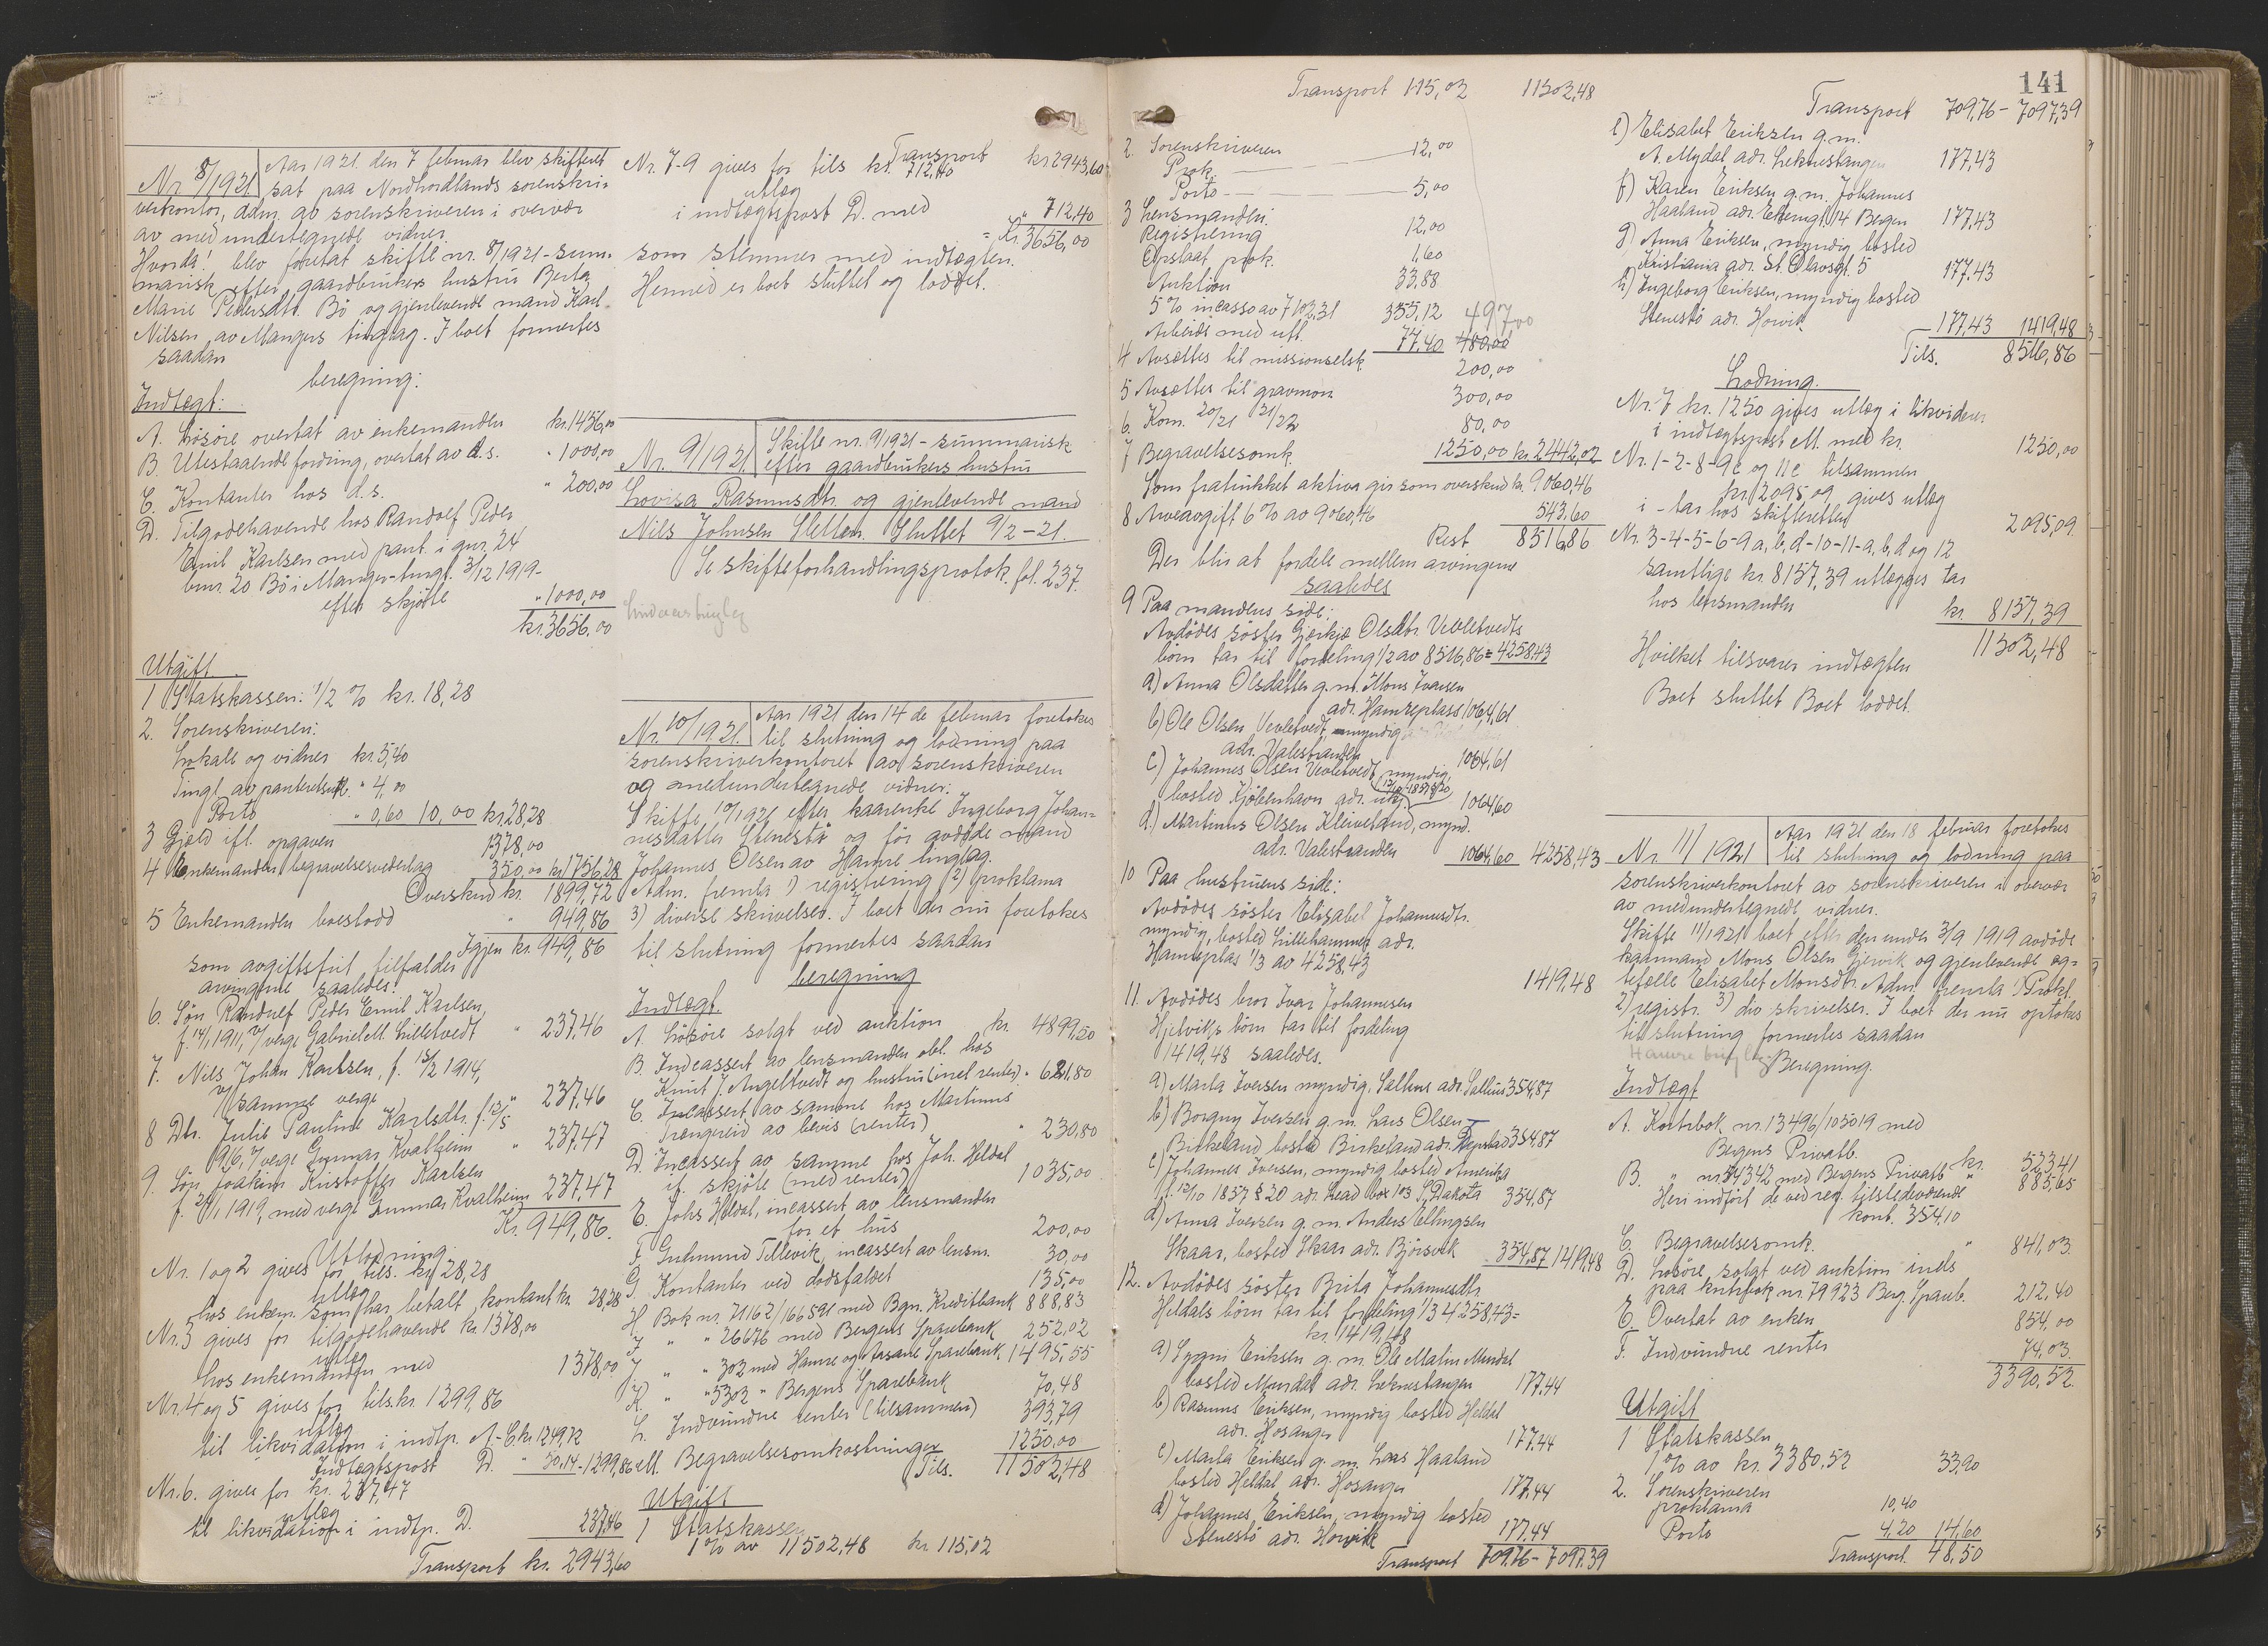 Nr. 8/1921
Aar 1921 den 7 februar blev skifteret
sat paa Nordhordlands sorenskri-
verkontor, adm. av sorenskriveren i overvær
av medundertegnede vidner.
Hvorda! blev foretat skifte nr. 8/1921 - sum-
marisk efter gaardbrukers hustru Berta
Marie Pedersdtr. Bö og gjenlevende mand Karl
Nilsen av Mangers tinglag. I boet formertes
saadan
beregning:
Indtægt:
A. Lösöre overtat av enkemanden kr. 1456,00
B. Utestaaende fordring, overtat av d.s. " 1000,00
C. Kontanter hos d.s. " 200,00
D. Tilgodehavende hos Randolf Peder
Emil Karlsen med pant i gnr. 24
bnr. 20 Bö i Manger tingl. 3/12 1919-
efter skjöte " 1000,00
kr. 3656,00
Utgift
1 Statskassen: 1/2 % kr. 18,28
2. Sorenskriveren:
Lokale og vidner kr. 5,40
Tingl. av panteretsutl. " 4,00
Porto " 0,60 10,00 kr. 28,28
3 Gjæld ifl. opgaven 1378,00
4 Enkemanden begravelsesvederlag 350,00 kr. 1756,28
Overskud kr. 1899,72
5 Enkemanden boeslodd " 949,86
Igjen kr. 949,86
som avgiftsfrit tilfalder
arvingerne saaledes:
6. Sön Randulf Peder Emil Karlsen,
f. 14/1 1911, v/verge Gabriel M. Lilletvedt " 237,46
7. Nils Johan Karlsen, f. 15/2 1914,
v/ samme verge " 237,46
8 Dtr. Julie Pauline Karlsdtr. f. 12/5
1916, v/verge Gunnar Kvalheim " 237,47
9. Sön Joakim Kristoffer Karlsen
f. 21/1 1919, med verge Gunnar Kvalheim 237,47
Kr. 949,86.
Utlodning
Nr. 1 og 2 gives for tils. kr. 28,28
utlæg
hos enkem. som har betalt kontant kr. 28,28
Nr. 3 gives for tilgodehavende kr. 1378,00
utlæg
hos enkemanden med 1378,00
Nr. 4 og 5 gives for tils. kr. 1299,86
utlæg
til likvidation i indtp. A-C. kr. 1249,72
Indtægtspost D. " 50,14 - 1299,86
Nr. 6. gives for kr. 237,47
utlæg
til likvidation i indtp. D. 237,46
Transport kr. 2943,60
Transport kr. 2943,60
Nr. 7-9 gives for tils kr. 712,40
utlæg
i indtægtspost D. med " 712,40
= Kr. 3656,00
som stemmer med indtægten.
Hermed er boet sluttet og loddet.
Nr. 9/1921.
Skifte nr. 9/1921 - summarisk
efter gaardbrukers hustru
Lovisa Rasmusdtr. og gjenlevende mand
Nils Johnsen Sletten. Sluttet 9/2-21.
Se skifteforhandlingsprotok. fol. 237.
Nr. 10/1921.
Aar 1921 den 14 de februar foretokes
til slutning og lodning paa
sorenskriverkontoret av sorenskriveren
og medundertegnede vidner:
Skifte 10/1921 efter kaarenke Ingeborg Johan-
nesdatter Stenestö og för avdöde mand
Johannes Olsen av Hamre tinglag.
Adm. fremla 1) registrering 2) proklama
3) diverse skrivelser. I boet der nu foretokes
til slutning formertes saadan
beregning
Indtægt.
A. Lösöre solgt ved auktion kr. 4899,50
B. Indcassert av lensmanden obl. hos
Knut J. Angeltvedt og hustru (incl renter) " 621,80
C. Incassert av samme hos Martinus
Trængreid av bevis (renter) " 230,80
D. Incassert av samme hos Joh. Heldal
if. skjöte (med renter) 1035,00
E. Johs Heldal, incassert av lensmanden
for et hus 200,00
F. Gudmund Tellevik, incassert av lensm. 30,00
G. Kontanter ved dödsfaldet 135,00
H. Bok nr. 71162/166591 med Bgn. Kreditbank 888,83
I " " 26676 med Bergens Sparebank 252,02
J " " 302 med Hamre og Aasane Sparebank 1495,55
K. " " 5302 " Bergens Sparebank 70,48
L. Indvundne renter (tilsammen) 393,79
M. Begravelsesomkostninger 1250,00
Tils. 11502,48
Utgift
1 Statskassen
1% av 11502,48 kr. 115,02
141
Transport 115,02 11502,48
2. Sorenskriveren
Prok. 12,00
Porto 5,00
3 Lensmanden:
Registrering 12,00
Opslaat prok. 1,60
Auktion 33,88
5% incasso av 7102,31 355,12 497,00
Arbeide med utl. 77,40 480,00
4 Avsættes til missionselsk. 200,00
5 Avsættes til gravmon 300,00
6. Kom. 20/21 21/22 80,00
7 Begravelsesomk. 1250,00 kr. 2442,02
Som fratrukket aktiva gir som overskud kr. 9060,46
8 Arveavgift 6% av 9060,46 543,60
Rest 8516,86
Der blir at fordele mellem arvingerne
saaledes
9 Paa mandens side:
Avdödes söster Gjertje Olsdtr. Vevletvedts
börn tar til fordeling 1/2 av 8516,86 = 4258,43
a) Anna Olsdatter g.m. Mons Iversen
adr. Hamreplass 1064,61
b) Ole Olsen Vevletvedt, myndig
adr. Valestranden 1064,61
c) Johannes Olsen Vevletvedt, myndig,
bosted Kjöbenhavn adr. ukj. (12/10 1857 § 20) 1064,60
d.) Martinus Olsen Kleiveland, mynd.
adr. Valestranden 1064,60 4258,43
10 Paa hustruens side:
Avdödes söster Elisabet Johannesdtr.
myndig, bosted Lillehammer adr.
Hamreplas 1/3 av 4258,43 1419,48
11. Avdödes bror Ivar Johannesen
Hjelviks börn tar til fordeling
1419,48 saaledes.
a) Marta Iversen myndig, Salhus adr. Salhus 354,87
b) Borguy Iversen g.m. Lars Olsen
Birkeland, bosted Birkeland adr. 354,87
c) Johannes Iversen, myndig bosted Amerika
l. 12/10 1857 § 20 adr. Lead box 103 S. Dakota 354,87
d) Anna Iversen g.m. Anders Ellingsen
Skaar, bosted Skaar adr. Björsvik 354,87 1419,48
12. Avdödes söster Brita Johannesdtr.
Heldals börn tar til fordeling 1/3 4258,43 =
kr. 1419,48
a) Sygni Eriksen g.m. Ole Malin Mundal
bosted Mundal adr. Leknestangen 177,44
b) Rasmus Eriksen, myndig bosted Heldal
adr. Hosanger 177,44
c) Marta Eriksen g.m. Lars Haaland
bosted Heldal, adr. Hosanger 177,44
d) Johannes Eriksen, myndig bosted
Stenestö adr. Horvik 177,44
Transport 709,76 - 7097,39
Transport 709,76 - 7097,39
e) Elisabet Eriksen g.m.
A. Mydal adr. Leknestangen 177,43
f) Karen Eriksen g.m. Johannes
Haaland adr. 14 Bergen 177,43
g) Anna Eriksen, myndig bosted
Kristiania adr. St. Olavsgt. 5 177,43
h) Ingeborg Eriksen, myndig bosted
Stenestö adr. Horvik 177,43 1419,48
Tils. 8516,86
Lodning.
Nr. 7 kr. 1250 gives utlæg i likvidation
i indtægtspost M. med kr. 1250,00
Nr. 1-2-8-9c og 11c tilsammen
kr. 2095,09 gives utlæg
i - tar hos skifteretten 2095,09.
Nr. 3-4-5-6-9a, b, d-10-11-a, b, d og 12
samtlige kr. 8157,39 utlægges tar
hos lensmanden kr. 8157,39
11502,48
Hvilket tilsvarer indtægten
Boet sluttet Boet loddet.
Nr. 11/1921
Aar 1921 den 18 februar foretokes
til slutning og lodning paa
sorenskriverkontoret av sorenskriveren i overvær
av medundertegnede vidner.
Skifte 11/1921 boet efter den under 3/9 1919 avdöde
kaarmand Mons Olsen Gjervik og gjenlevende eg-
tefælle Elisabet Monsdtr. Adm. fremla 1) Prokl.
2) registr. 3) div skrivelser. I boet der nu optokes
til slutning formertes saadan
Beregning.
Indtægt
A. Kontrabok nr. 13496/103019 med
Bergens Privatb. kr. 523,41
B. " nr. 34342 med Bergens Privatb. " 885,65
Heri indfört de ved reg. tilstedeværende
kont. 354,10
C. Begravelsesomk. " 841,03.
D. Lösöre, solgt ved auktion inds
paa kntrbok nr. 79923 Berg. Spareb. 212,40
E. Overtat av enken 854,00
F. Indvundne renter 74,03.
3390,52.
Utgift
1 Statskassen
1% av kr. 3380,52 33,90
2. Sorenskriveren
proklama 10,40
Porto 4,20 14,60
Transport. 48,50